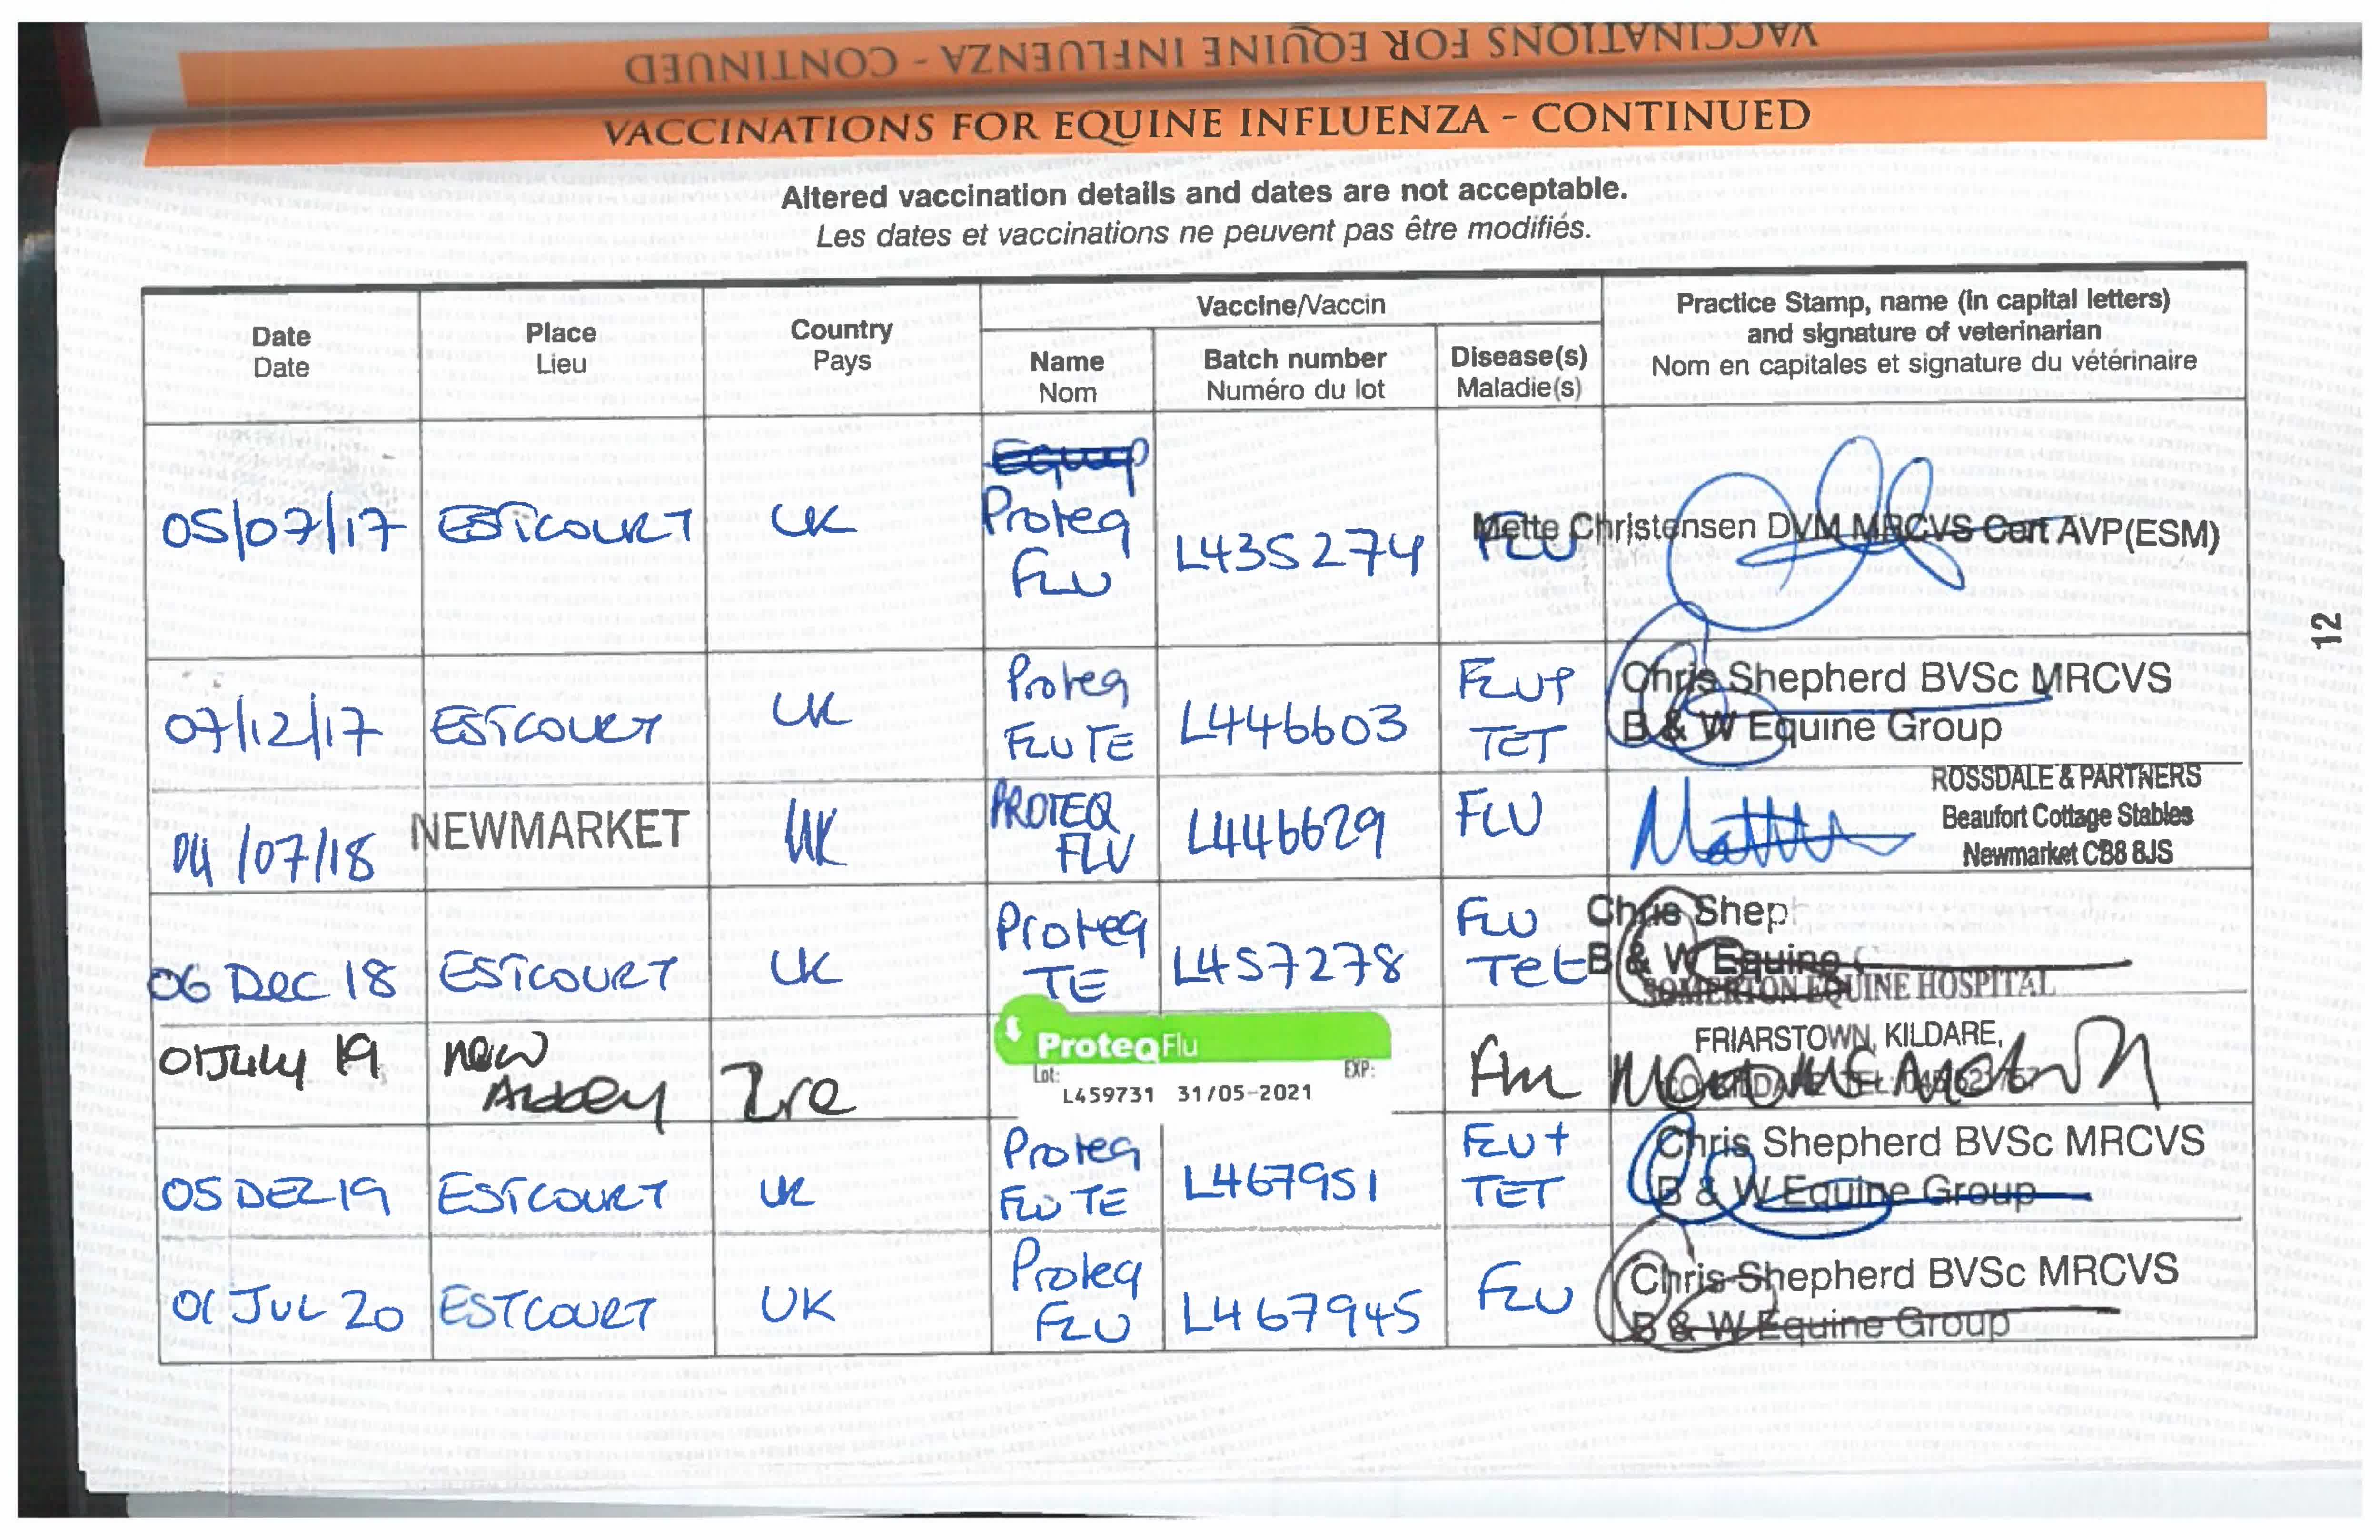 VACCINATIONS FOR EQUINE INFLUENZA - CONTINUED
VACCINATIONS FOR EQUINE INFLUENZA - CONTINUED
Altered vaccination details and dates are not acceptable.
Les dates et vaccinations ne peuvent pas être modifiés.
Date
Date
Place
Lieu
Country
Pays
Vaccine/Vaccin
Name
Nom
Batch number
Numéro du lot
Disease(s)
Maladie(s)
Practice Stamp, name (in capital letters)
and signature of veterinarian
Nom en capitales et signature du vétérinaire
05/07/17 ESTCOURT UK
Proteq
FLU
L435274
FLU
Mette Christensen DVM MRCVS Cert AVP(ESM)
12
07/12/17 ESTCOURT UK
Proteq
FLU TE
L446603
FLU+
TET
Chris Shepherd BVSc MRCVS
B & W Equine Group
04/07/18 NEWMARKET UK
PROTEQ
FLU
L446629
FLU
ROSSDALE & PARTNERS
Beaufort Cottage Stables
Newmarket CB8 8JS
06 Dec 18 ESTCOURT UK
Proteq
TE
L457278
FLU
Tet
Chris Shep
B & W Equine
SOMERTON EQUINE HOSPITAL
01 July 19 New
Abbey Ire
ProteqFlu
Lot: EXP:
L459731 31/05-2021
FRIARSTOWN, KILDARE,
05 DEZ 19 ESTCOURT UK
Proteq
FLU TE
L467951
FLU +
TET
Chris Shepherd BVSc MRCVS
B & W Equine Group
01 JUL 20 ESTCOURT UK
Proteq
FLU
L467945
FLU
Chris Shepherd BVSc MRCVS
B & W Equine Group